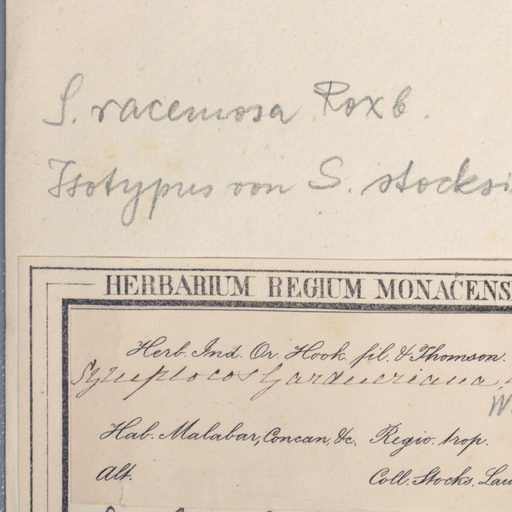 S. racemosa Roxb.
Isotypus von S. stocksi
HERBARIUM REGIUM MONACENS
Herb. Ind. Or. Hook. fil. & Thomson.
Symplocos Gardneriana
W.
Hab. Malabar, Concan, &c. Regio trop.
Alt. Coll. Stocks, Law